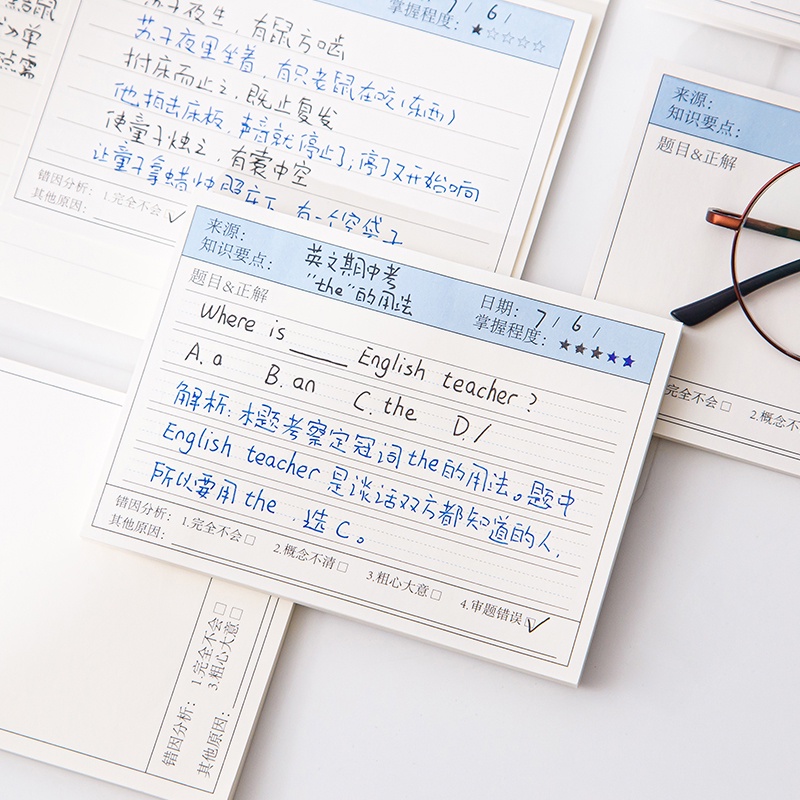 苏子夜坐，有鼠方啮
苏子夜里坐着，有只老鼠在咬(东西)
拊床而止之，既止复发
他拍击床板，声音就停止了，停了又开始响
使童子烛之，有橐中空
让童子拿蜡烛照床下，有一个空袋子
掌握程度：★☆☆☆☆
7 / 6 /
错因分析： 1.完全不会
其他原因：
来源：
知识要点：
题目&正解
完全不会□ 2.概念不
来源： 英文期中考
知识要点： "the"的用法
日期： 7 / 6 /
掌握程度：★★★★★
题目&正解
Where is ____ English teacher ?
A. a B. an C. the D. /
解析：本题考察定冠词the的用法。题中
English teacher 是谈话双方都知道的人，
所以要用 the ，选 C。
错因分析： 1.完全不会□ 2.概念不清□ 3.粗心大意□ 4.审题错误☑
其他原因：
错因分析： 1.完全不会□
3.粗心大意□
其他原因：